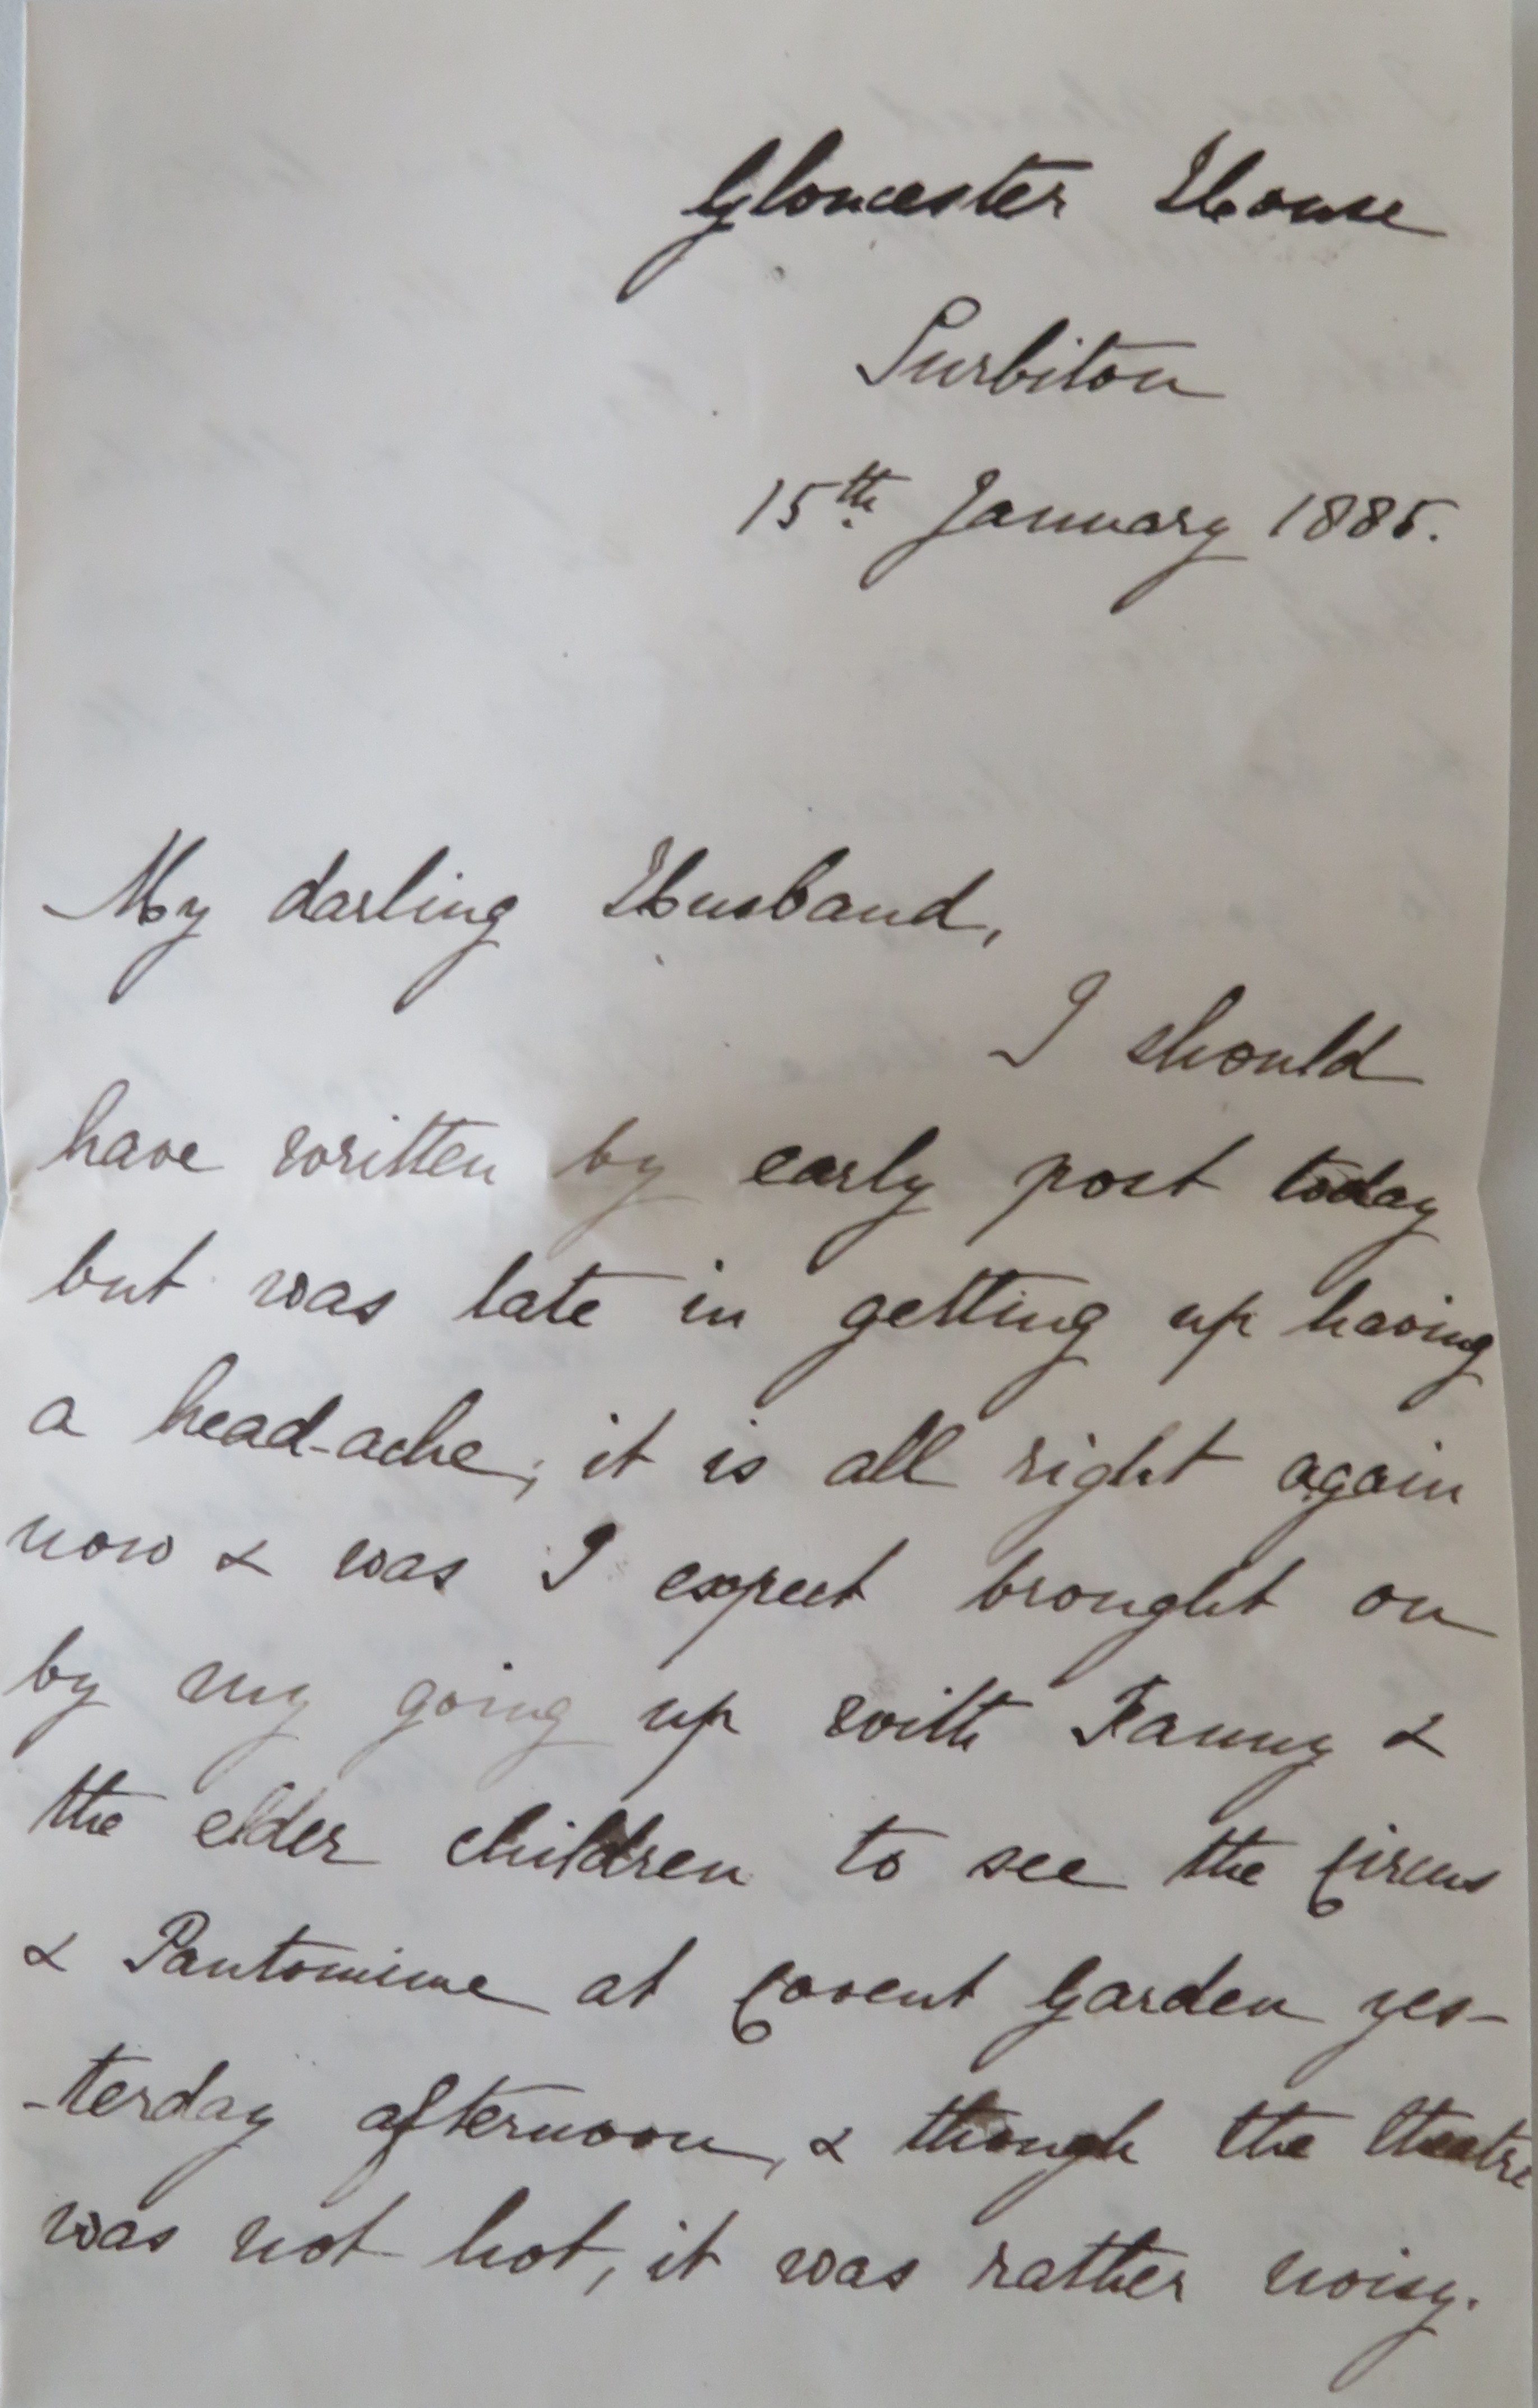 Gloucester House
Surbiton
15th January 1885.
My darling Husband,
I should
have written by early post today
but was late in getting up having
a head-ache; it is all right again
now & was I expect brought on
by my going up with Fanny &
the elder children to see the Circus
& Pantomime at Covent Garden yes-
-terday afternoon, & though the theatre
was not hot, it was rather noisy.